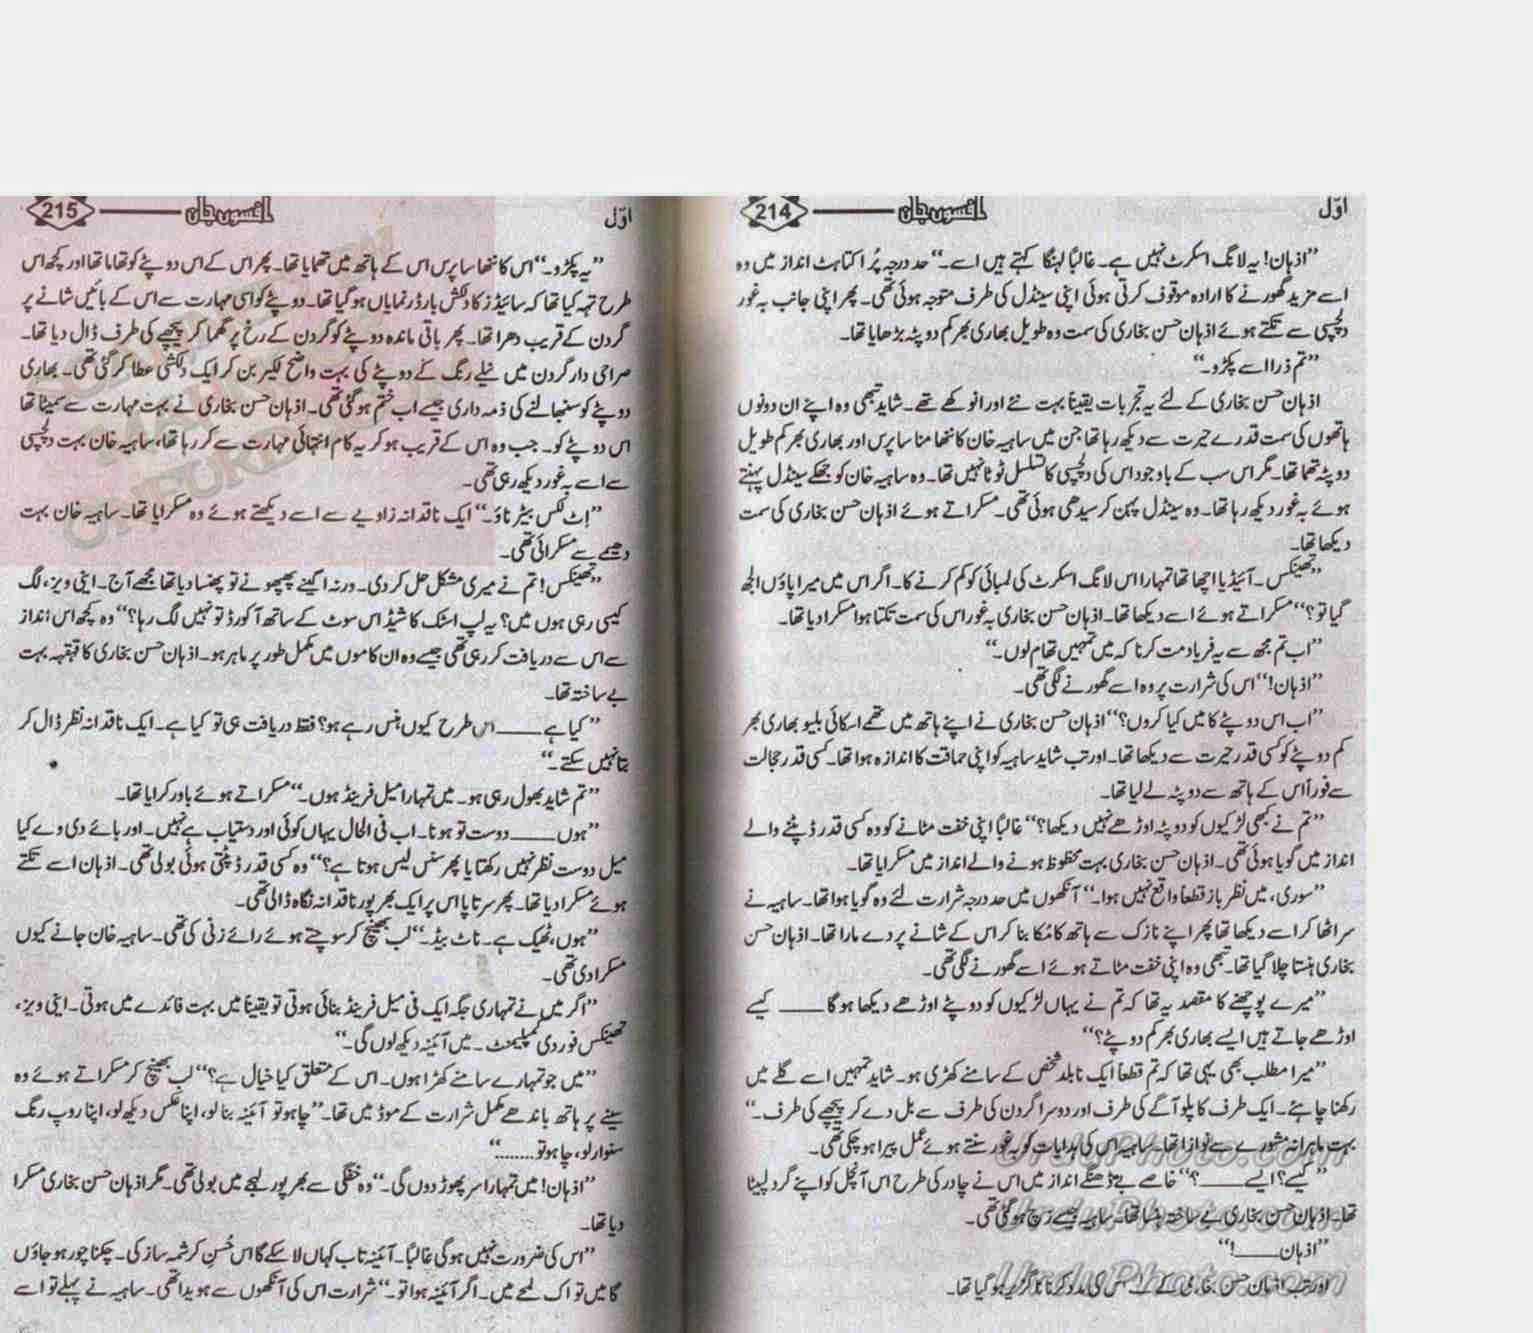 افسوں جاں
214
اوّل
”اذہان! یہ لانگ اسکرٹ نہیں ہے۔ غالباً لہنگا کہتے ہیں اسے۔“ حد درجہ پُر اکتاہٹ انداز میں وہ
اسے مزید گھورنے کا ارادہ موقوف کرتی ہوئی اپنی سینڈل کی طرف متوجہ ہوئی تھی۔ پھر اپنی جانب بہ غور
دلچسپی سے تکتے ہوئے اذہان حسن بخاری کی سمت وہ طویل بھاری بھر کم دوپٹہ بڑھایا تھا۔
”تم ذرا اسے پکڑو۔“
اذہان حسن بخاری کے لئے یہ تجربات یقیناً بہت نئے اور انوکھے تھے۔ شاید تبھی وہ اپنے ان دونوں
ہاتھوں کی سمت قدرے حیرت سے دیکھ رہا تھا جن میں ساہیہ خان کا ننھا منا سا پرس اور بھاری بھر کم طویل
دوپٹہ تھما تھا۔ مگر اس سب کے باوجود اس کی دلچسپی کا تسلسل ٹوٹا نہیں تھا۔ وہ ساہیہ خان کو جھکے سینڈل پہنتے
ہوئے بہ غور دیکھ رہا تھا۔ وہ سینڈل پہن کر سیدھی ہوئی تھی۔ مسکراتے ہوئے اذہان حسن بخاری کی سمت
دیکھا تھا۔
”تھینکس۔ آئیڈیا اچھا تھا تمہارا اس لانگ اسکرٹ کی لمبائی کو کم کرنے کا۔ اگر اس میں میرا پاؤں الجھ
گیا تو؟“ مسکراتے ہوئے اسے دیکھا تھا۔ اذہان حسن بخاری بہ غور اس کی سمت تکتا ہوا مسکرا دیا تھا۔
”اب تم مجھ سے یہ فریاد مت کرنا کہ میں تمہیں تھام لوں۔“
”اذہان!“ اس کی شرارت پر وہ اسے گھورنے لگی تھی۔
”اب اس دوپٹے کا میں کیا کروں؟“ اذہان حسن بخاری نے اپنے ہاتھ میں تھمے اسکائی بلیو بھاری بھر
کم دوپٹے کو کسی قدر حیرت سے دیکھا تھا۔ اور تب شاید ساہیہ کو اپنی حماقت کا اندازہ ہوا تھا۔ کسی قدر خجالت
سے فوراً اس کے ہاتھ سے دوپٹہ لے لیا تھا۔
”تم نے کبھی لڑکیوں کو دوپٹہ اوڑھے نہیں دیکھا؟“ غالباً اپنی خفت مٹانے کو وہ کسی قدر ڈپٹنے والے
انداز میں گویا ہوئی تھی۔ اذہان حسن بخاری بہت محظوظ ہونے والے انداز میں مسکرایا تھا۔
”سوری، میں نظر باز قطعاً واقع نہیں ہوا۔“ آنکھوں میں حد درجہ شرارت لئے وہ گویا ہوا تھا۔ ساہیہ نے
سر اٹھا کر اسے دیکھا تھا پھر اپنے نازک سے ہاتھ کا مُکا بنا کر اس کے شانے پر دے مارا تھا۔ اذہان حسن
بخاری ہنستا چلا گیا تھا۔ تبھی وہ اپنی خفت مٹاتے ہوئے اسے گھورنے لگی تھی۔
”میرے پوچھنے کا مقصد یہ تھا کہ تم نے یہاں لڑکیوں کو دوپٹے اوڑھے دیکھا ہو گا ــــــ کیسے
اوڑھے جاتے ہیں ایسے بھاری بھر کم دوپٹے؟“
”میرا مطلب بھی یہی تھا کہ تم قطعاً ایک نابلد شخص کے سامنے کھڑی ہو۔ شاید تمہیں اسے گلے میں
رکھنا چاہئے۔ ایک طرف کا پلو آگے کی طرف اور دوسرا گردن کی طرف سے بل دے کر پیچھے کی طرف۔“
بہت ماہرانہ مشورے سے نوازا تھا۔ ساہیہ اس کی ہدایات کو بہ غور سنتے ہوئے عمل پیرا ہو چکی تھی۔
”کیسے؟ ایسے ــــــ؟“ خاصے بے ڈھنگے انداز میں اس نے چادر کی طرح اس آنچل کو اپنے گرد لپیٹا
تھا۔ اذہان حسن بخاری بے ساختہ ہنسا تھا۔ ساہیہ جیسے زچ ہو گئی تھی۔
”اذہان ــــــ!“
اور تب اذہان حسن بخاری کے لئے اس کی مدد کرنا ناگزیر ہو گیا تھا۔
UrduPhoto.com
UrduPhoto.com
UrduPhoto.com
افسوں جاں
215
اوّل
”یہ پکڑو۔“ اس کا ننھا سا پرس اس کے ہاتھ میں تھمایا تھا۔ پھر اس کے اس دوپٹے کو تھاما تھا اور کچھ اس
طرح تہہ کیا تھا کہ سائیڈز کا دلکش بارڈر نمایاں ہو گیا تھا۔ دوپٹے کو اسی مہارت سے اس کے بائیں شانے پر
گردن کے قریب دھرا تھا۔ پھر باقی ماندہ دوپٹے کو گردن کے رخ پر گھما کر پیچھے کی طرف ڈال دیا تھا۔
صراحی دار گردن میں نیلے رنگ کے دوپٹے کی بہت واضح لکیر بن کر ایک دلکشی عطا کر گئی تھی۔ بھاری
دوپٹے کو سنبھالنے کی ذمہ داری جیسے اب ختم ہو گئی تھی۔ اذہان حسن بخاری نے بہت مہارت سے سمیٹا تھا
اس دوپٹے کو۔ جب وہ اس کے قریب ہو کر یہ کام انتہائی مہارت سے کر رہا تھا، ساہیہ خان بہت دلچسپی
سے اسے بہ غور دیکھ رہی تھی۔
”اِٹ لکس بیٹر ناؤ۔“ ایک ناقدانہ زاویے سے اسے دیکھتے ہوئے وہ مسکرایا تھا۔ ساہیہ خان بہت
دھیمے سے مسکرائی تھی۔
”تھینکس! تم نے میری مشکل حل کر دی۔ ورنہ اکینے پھپھو نے تو پھنسا دیا تھا مجھے آج۔ اینی ویز، لگ
کیسی رہی ہوں میں؟ یہ لپ اسٹک کا شیڈ اس سوٹ کے ساتھ آکورڈ تو نہیں لگ رہا؟“ وہ کچھ اس انداز
سے اس سے دریافت کر رہی تھی جیسے وہ ان کاموں میں مکمل طور پر ماہر ہو۔ اذہان حسن بخاری کا قہقہہ بہت
بے ساختہ تھا۔
”کیا ہے ــــــ اس طرح کیوں ہنس رہے ہو؟ فقط دریافت ہی تو کیا ہے۔ ایک ناقدانہ نظر ڈال کر
بتا نہیں سکتے۔“
”تم شاید بھول رہی ہو۔ میں تمہارا میل فرینڈ ہوں۔“ مسکراتے ہوئے باور کرایا تھا۔
”ہوں ــــــ دوست تو ہو نا۔ اب فی الحال یہاں کوئی اور دستیاب ہے نہیں۔ اور بائے دی وے کیا
میل دوست نظر نہیں رکھتا یا پھر سنس لیس ہوتا ہے؟“ وہ کسی قدر ڈپٹتی ہوئی بولی تھی۔ اذہان اسے تکتے
ہوئے مسکرا دیا تھا۔ پھر سرتاپا اس پر ایک بھرپور ناقدانہ نگاہ ڈالی تھی۔
”ہوں، ٹھیک ہے۔ ناٹ بیڈ۔“ لب بھینچ کر سوچتے ہوئے رائے زنی کی تھی۔ ساہیہ خان جانے کیوں
مسکرا دی تھی۔
”اگر میں نے تمہاری جگہ ایک فی میل فرینڈ بنائی ہوتی تو یقیناً میں بہت فائدے میں ہوتی۔ اینی ویز،
تھینکس فور دی کمپلیمنٹ۔ میں آئینہ دیکھ لوں گی۔“
”میں جو تمہارے سامنے کھڑا ہوں۔ اس کے متعلق کیا خیال ہے؟“ لب بھینچ کر مسکراتے ہوئے وہ
سینے پر ہاتھ باندھے مکمل شرارت کے موڈ میں تھا۔ ”چاہو تو آئینہ بنا لو، اپنا عکس دیکھ لو، اپنا روپ رنگ
سنوار لو، چاہو تو........“
”اذہان! میں تمہارا سر پھوڑ دوں گی۔“ وہ خفگی سے بھرپور لہجے میں بولی تھی۔ مگر اذہان حسن بخاری مسکرا
دیا تھا۔
”اس کی ضرورت نہیں ہو گی غالباً۔ آئینہ تاب کہاں لا سکے گا اس حُسنِ کرشمہ ساز کی۔ چکنا چور ہو جاؤں
گا میں تو اک لمحے میں۔ اگر آئینہ ہوا تو۔“ شرارت اس کی آنکھوں سے ہویدا تھی۔ ساہیہ نے پہلے تو اسے